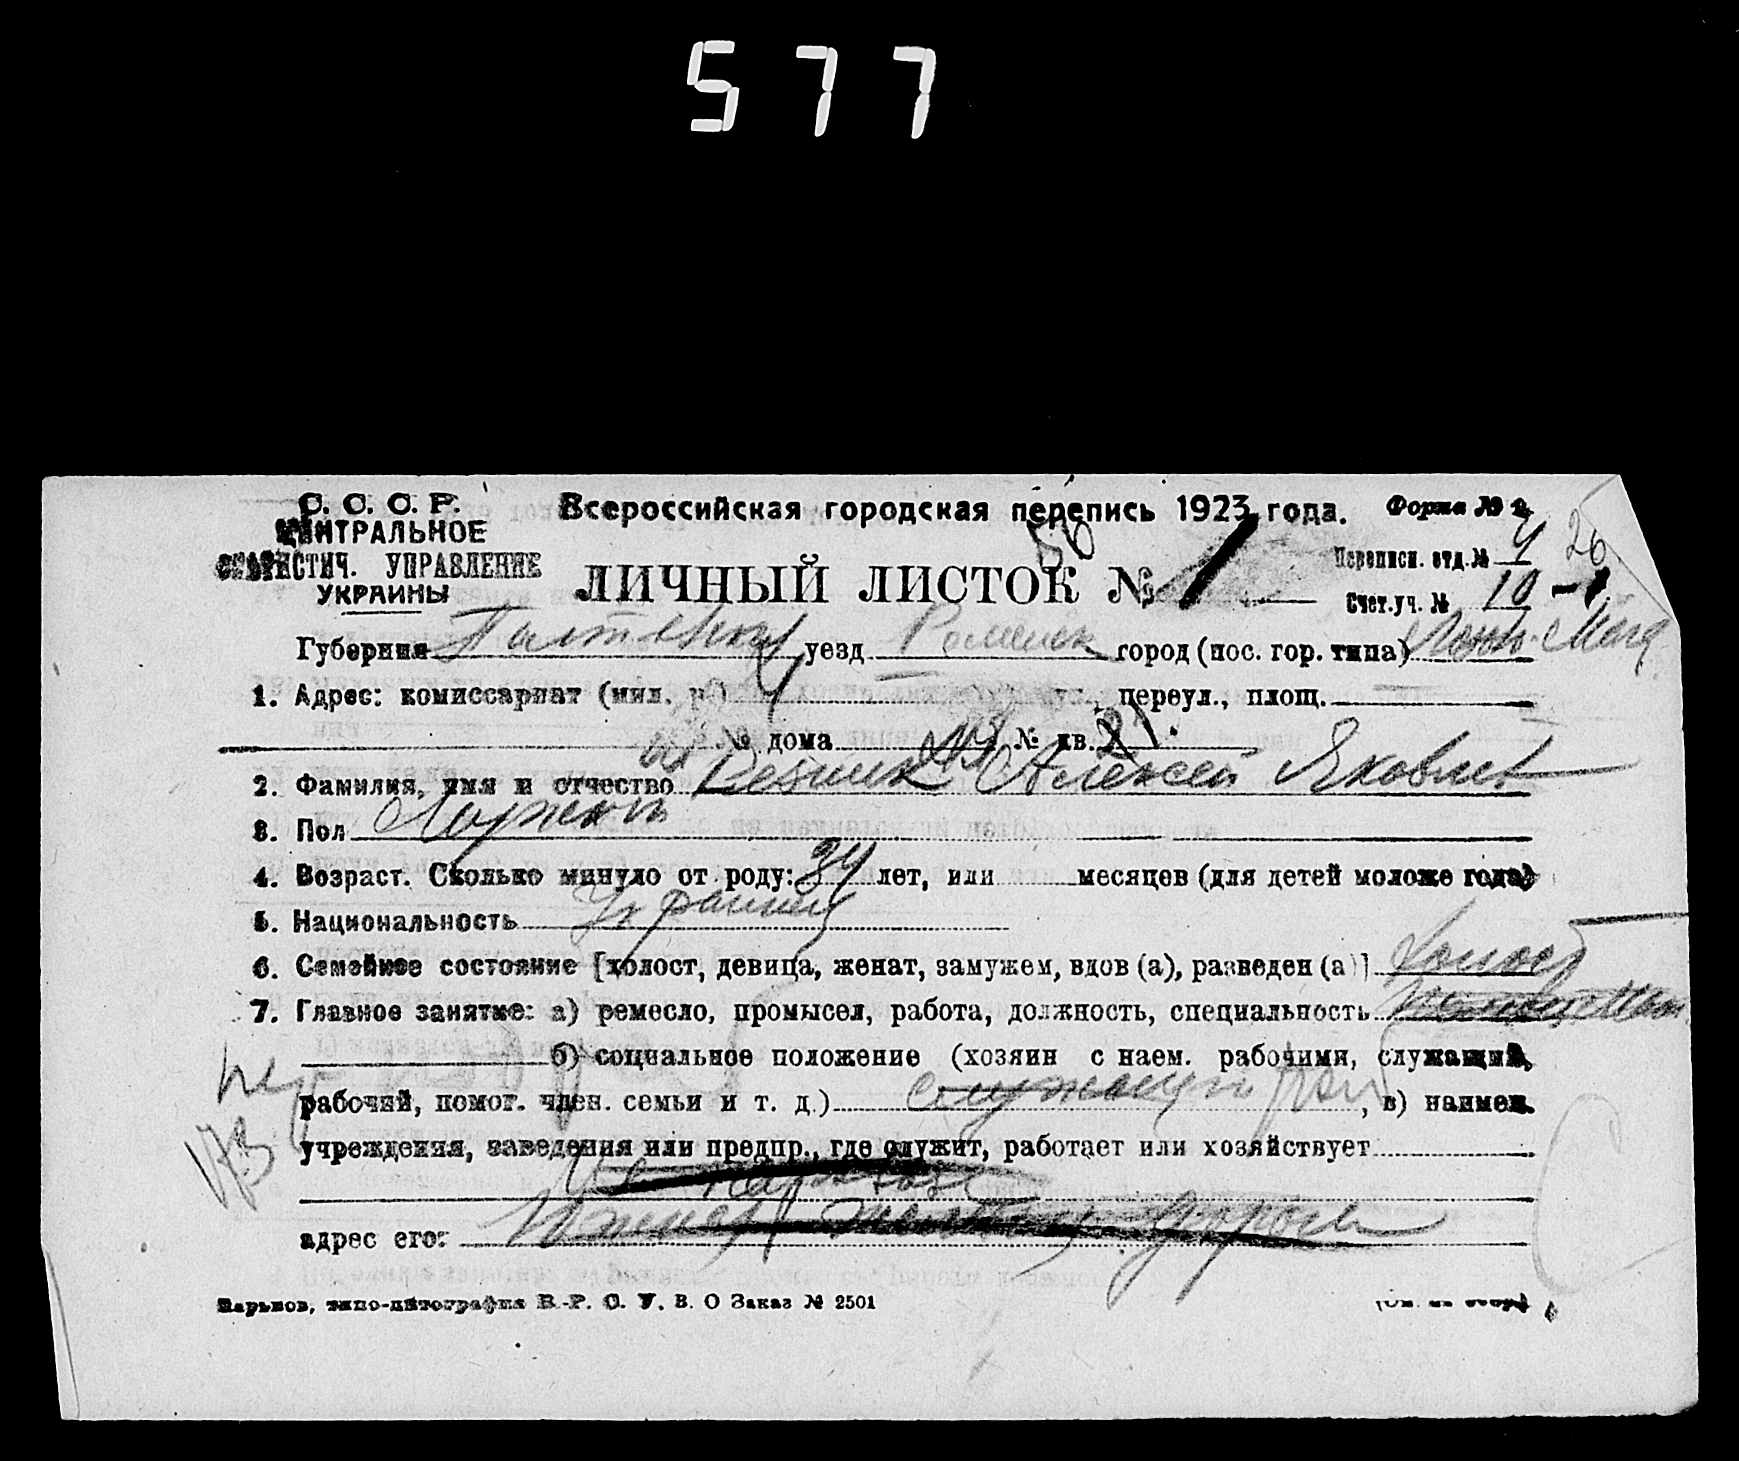 577
С. С. С. Р. Всероссийская городская перепись 1923 года. Форма № 2
ЦЕНТРАЛЬНОЕ
СТАТИСТИЧ. УПРАВЛЕНИЕ
УКРАИНЫ
56
ЛИЧНЫЙ ЛИСТОК № 1
Переписн. отд. № 4 26
Счет. уч. № 10 - 1
Губерния Полтавская уезд Роменск город (пос. гор. типа)
1. Адрес: комиссариат (мил. р.) 4 ул., переул., площ.
№ дома № кв. 21
2. Фамилия, имя и отчество Резник Алексей Яковлев
3. Пол Мужской
4. Возраст. Сколько минуло от роду: 34 лет, или месяцев (для детей моложе года)
5. Национальность Украинец
6. Семейное состояние [холост, девица, женат, замужем, вдов (а), разведен (а)] холост
7. Главное занятие: а) ремесло, промысел, работа, должность, специальность
б) социальное положение (хозяин с наем. рабочими, служащий,
рабочий, помог. член. семьи и т. д.) служащий, в) наимен.
учреждения, заведения или предпр., где служит, работает или хозяйствует
адрес его: дороги
Харьков, типо-литография В.-Р. С. У. В. О Заказ № 2501